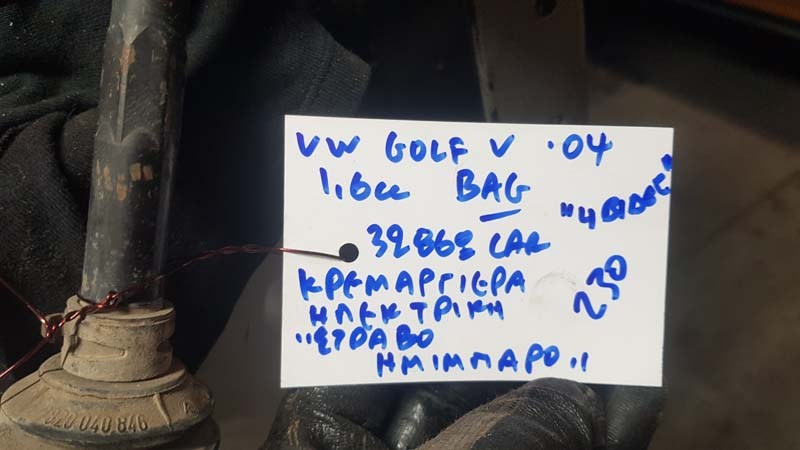 VW GOLF V '04
1,6cc BAG
"4ΒΙΔΕΣ"
39868 CAR
ΚΡΕΜΑΡΓΙΕΡΑ
230
ΗΛΕΚΤΡΙΚΗ
"ΣΤΡΑΒΟ
ΗΜΙΜΠΑΡΟ"
820 040 846 A